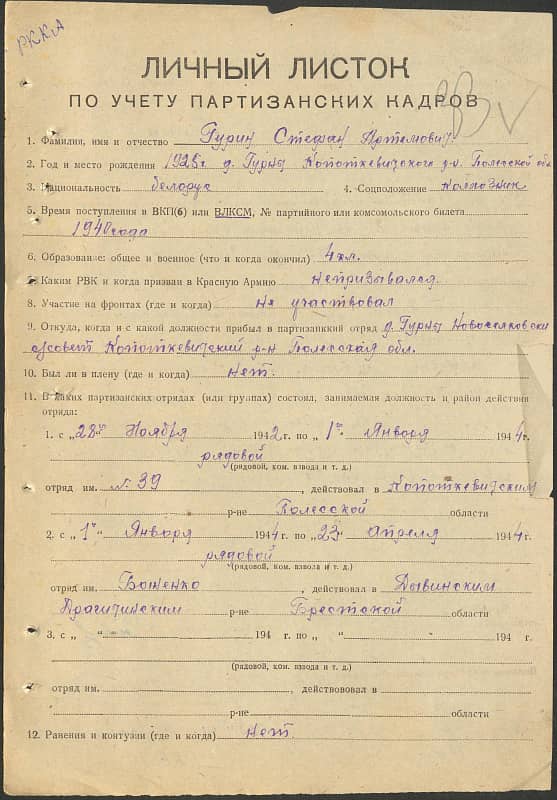 РККА
ЛИЧНЫЙ ЛИСТОК
ПО УЧЕТУ ПАРТИЗАНСКИХ КАДРОВ
1. Фамилия, имя и отчество Гурин Стефан Артемович
2. Год и место рождения 1925г д. Гурны Копоткевичского р-н. Полесской обл
3. Национальность белорус 4. Соцположение колхозник
5. Время поступления в ВКП(б) или ВЛКСМ, № партийного или комсомольского билета
1940 года
6. Образование: общее и военное (что и когда окончил) 4 кл.
7. Каким РВК и когда призван в Красную Армию непризывался
8. Участие на фронтах (где и когда) Не участвовал
9. Откуда, когда и с какой должности прибыл в партизанский отряд д. Гурны Новоселковски
с/совет Копоткевичский р-н Полесская обл.
10. Был ли в плену (где и когда) Нет.
11. В каких партизанских отрядах (или группах) состоял, занимаемая должность и район действия
отряда:
1. с „28" Ноября 1942 г. по „1" Января 1944 г.
рядовой
(рядовой, ком. взвода и т. д.)
отряд им. № 39, действовал в Копоткевичским
р-не Полесской области
2. с „1" Января 1944 г. по „23" апреля 1944 г.
рядовой
(рядовой, ком. взвода и т. д.)
отряд им. Боженко, действовал в Дывинским
Драгичинским р-не Брестской области
3. с „ " 194 г. по „ " 194 г.
(рядовой, ком. взвода и т. д.)
отряд им. , действововал в
р-не области
12. Ранения и контузии (где и когда) Нет.